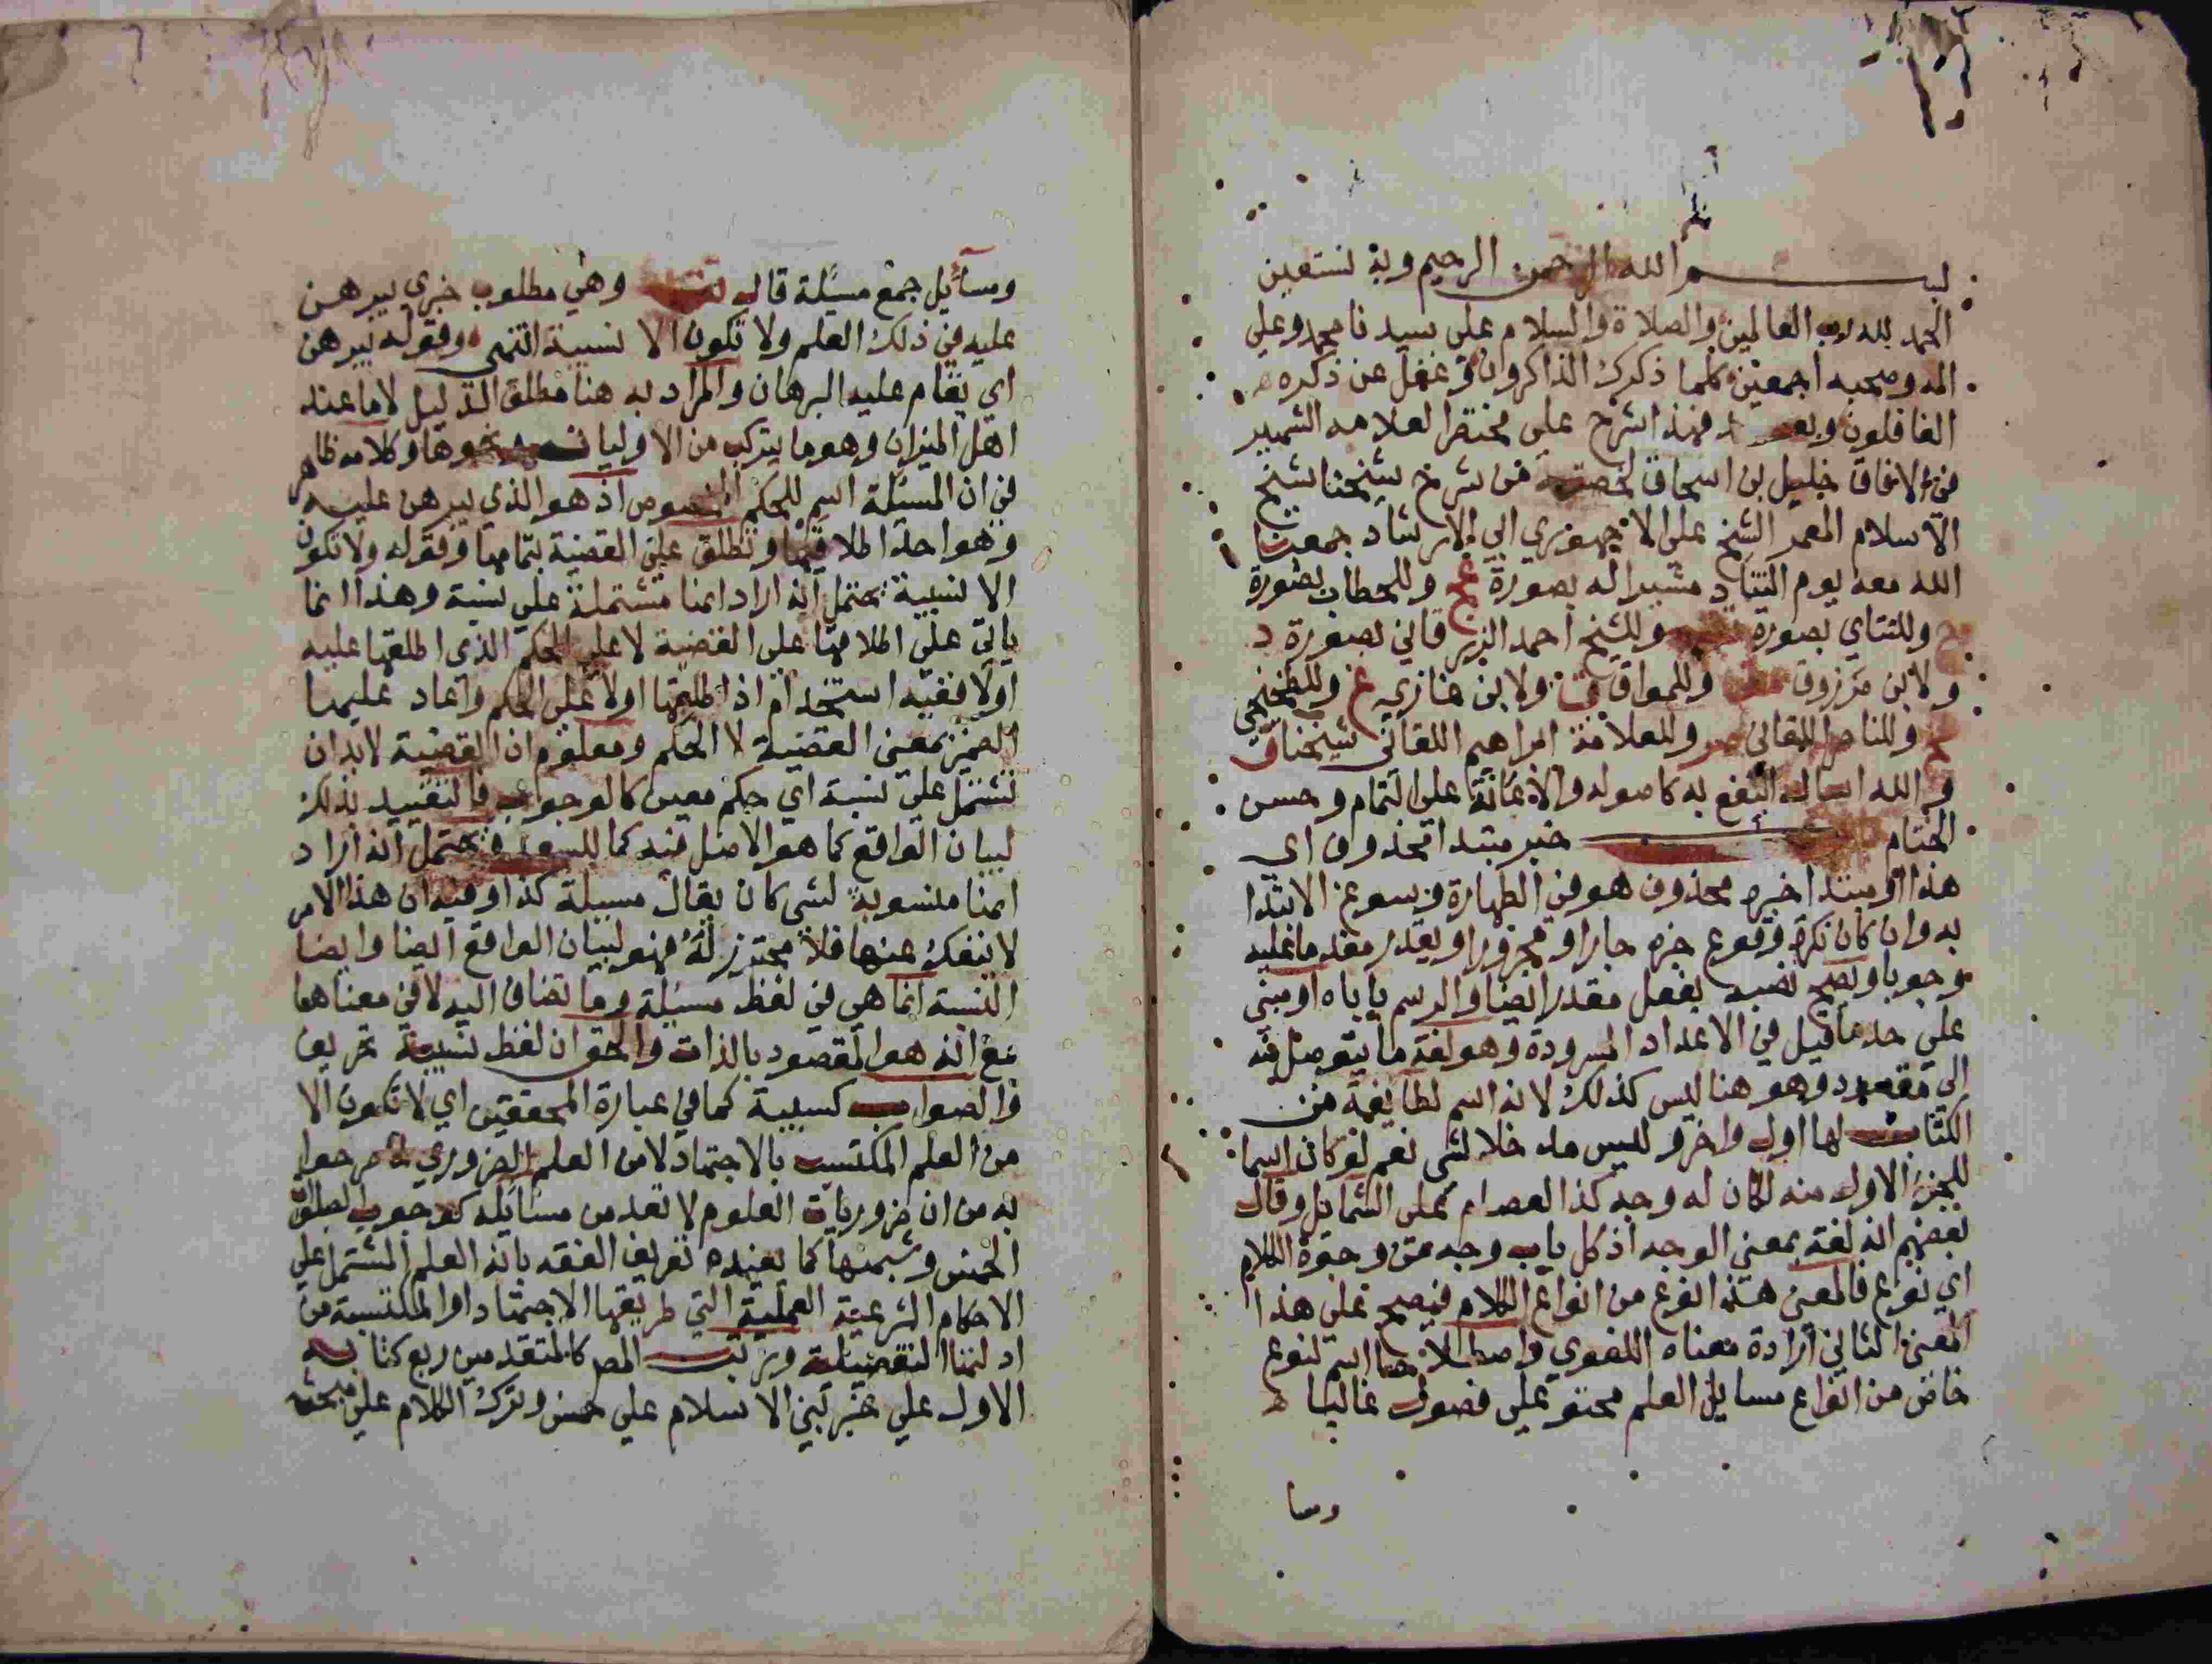 بسم الله الرحمن الرحيم وبه نستعين
الحمد لله رب العالمين والصلاة والسلام على سيدنا محمد وعلي
اله وصحبه اجمعين كلما ذكرك الذاكرون وغفل عن ذكره
الغافلون وبعد فهذا شرح علي مختصر العلامه الشهير
في الافاق خليل بن اسحاق لخصته من شرح شيخنا شيخ
الاسلام المعمر الشيخ علي الاجهوري ابي الارشاد جمعنا
الله معه يوم التناد مشيرا له بصورة عج وللحطاب بصورة
ح وللتتاي بصورة وللشيخ احمد الزرقاني بصورة د
ولابن مرزوق وللمواق ق ولابن غازي غ وللطخيخي
طخ وللناصر اللقاني وللعلامة ابراهيم اللقاني شيخنا ق
والله اسال النفع به كاصوله والاعانة على التمام وحسن
الختام خبر مبتدا محذوف اي
هذا او مبتدا خبره محذوف هو في الطهارة وسوغ الابتدا
به وان كان نكرة وقوع خبره جارا ومجرورا ويقدر مقدما عليه
وجوبا ويصح نصبه بفعل مقدر ايضا والرسم ياباه او مبني
علي حد ما قيل في الاعداد المسرودة وهو لغة ما يتوصل منه
الي مقصود وهو هنا ليس كذلك لانه اسم لطايفة من
الكتاب لها اول واخر وليس مدخلا لشي نعم لو كان اسما
للجزء الاول منه لكان له وجه كذا العصام على الشمايل وقال
بعضهم انه لغة بمعني الوجه اذ كل باب وجه من وجوه الكلام
اي نوع فالمعني هذا نوع من انواع الكلام فيصح علي هذا
المعنى الثاني ارادة معناه اللغوي واصطلاحا اسم لنوع
خاص من انواع مسايل العلم محتو علي فصول غالبا
وسا
ومسايل جمع مسئلة قال وهي مطلوب خبري يبرهن
عليه في ذلك العلم ولا تكون الا نسبية انتهى وقوله يبرهن
اي يقام عليه البرهان والمراد به هنا مطلق الدليل لا ما عند
اهل الميزان وهو ما يتركب من الاوليات ونحوها وكلامه ظاهر
في ان المسئلة اسم للحكم المنصوص اذ هو الذي يبرهن عليه
وهو احد اطلاقها وتطلق علي القضية بتمامها وقوله ولا تكون
الا نسبية يحتمل انه اراد انها مشتملة علي نسبة وهذا انما
ياتي علي اطلاقها علي القضية لا علي الحكم الذي اطلقها عليه
اولا ففيه استخدام اذ اطلقها اولا علي الحكم واعاد عليها
الضمير بمعني القضية لا الحكم ومعلوم ان القضية لابد ان
تشتمل علي نسبة اي حكم معين كالوجوب فالتقييد بذلك
لبيان الواقع كما هو الاصل فيه كما للسعد ويحتمل انه اراد
انها منسوبة لشي كان يقال مسيلة كذا وفيه ان هذا الامر
لا ينفك عنها فلا محترز له فهو لبيان الواقع ايضا وايضا
النسبة انما هي في لفظ مسئلة وما تضاف اليه لا في معناها
مع انه هو المقصود بالذات والحق ان لفظ نسبية تحريف
والصواب كسبية كما في عبارة المحققين اي لا تكون الا
من العلم المكتسب بالاجتهاد لا من العلم الضروري لما صرحوا
به من ان ضروريات العلوم لا تعد من مسايله كوجوب الصلوات
الخمس وشبهها كما يفيده تعريف الفقه بانه العلم المشتمل علي
الاحكام الشرعية العملية التي طريقها الاجتهاد او المكتسبة من
ادلتها التفصيلية ورتب المص كالمتقدمين ربع كتابه
الاول علي خبر بني الاسلام علي خمس وترك الكلام علي مبحث